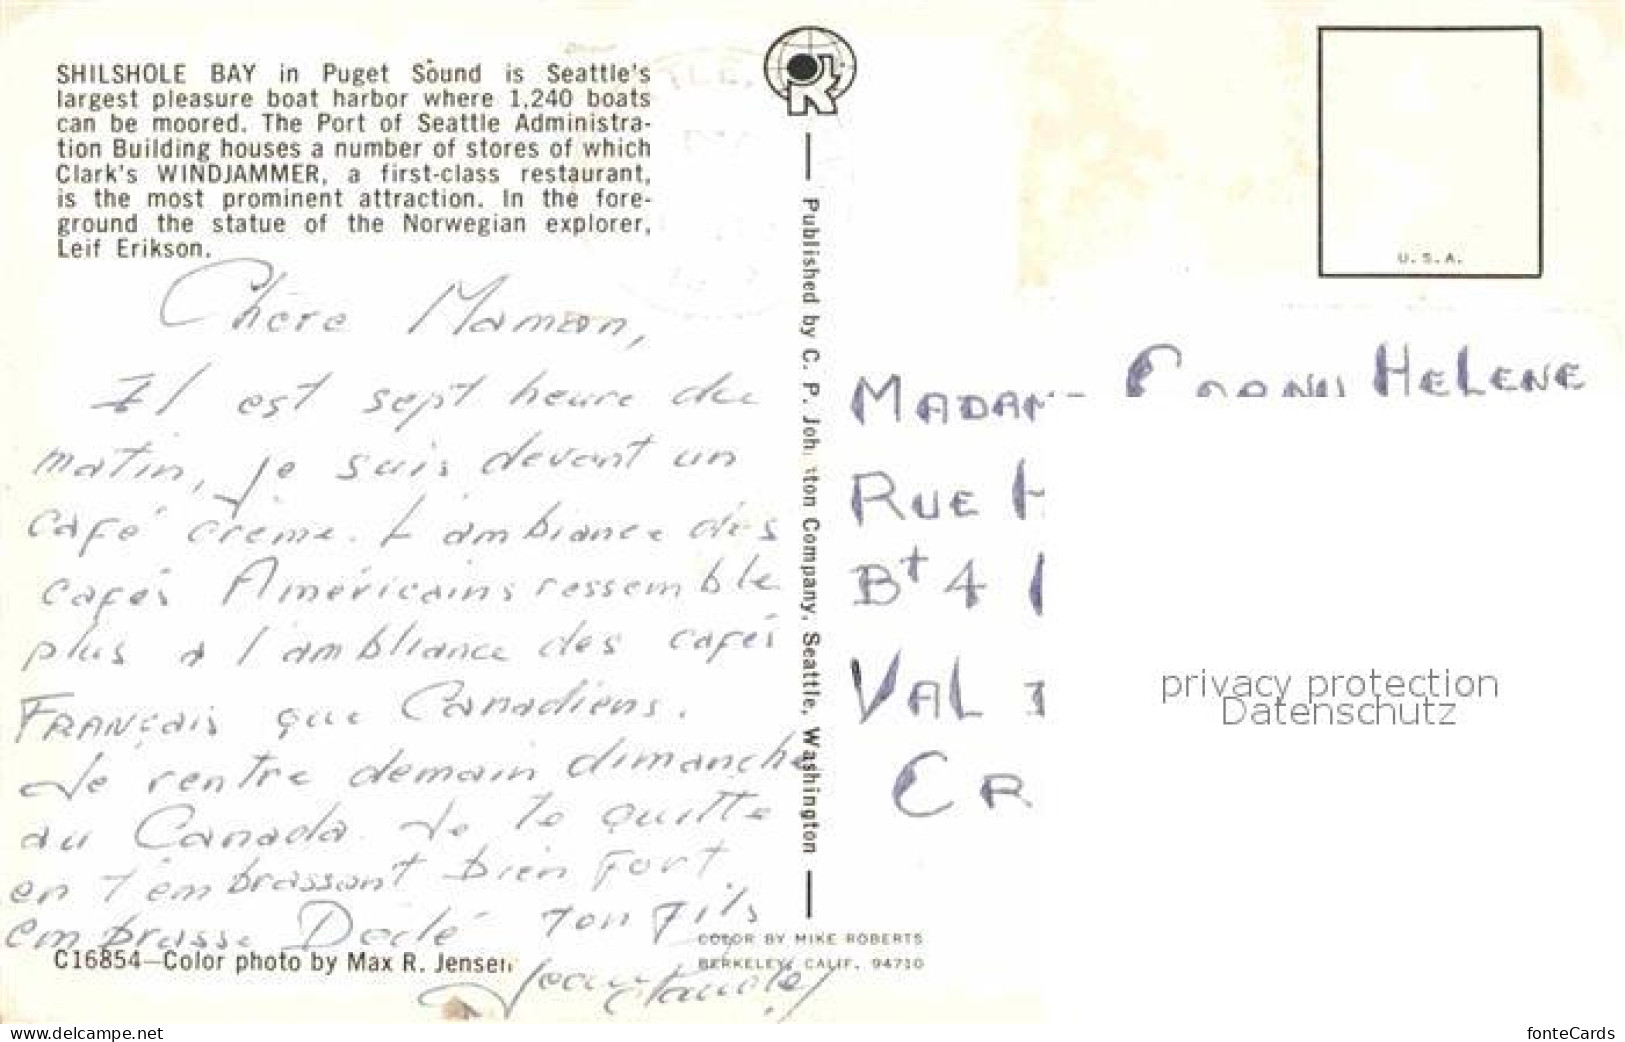 SHILSHOLE BAY in Puget Sound is Seattle's
largest pleasure boat harbor where 1,240 boats
can be moored. The Port of Seattle Administra-
tion Building houses a number of stores of which
Clark's WINDJAMMER, a first-class restaurant,
is the most prominent attraction. In the fore-
ground the statue of the Norwegian explorer,
Leif Erikson.
Chère Maman,
Il est sept heure du
matin, je suis devant un
café crème. L'ambiance des
cafés Américains ressemble
plus a l'ambiance des cafés
FRANçais que Canadiens.
Je rentre demain dimanche
au Canada. Je te quitte
en t'embrassant bien fort
embrasse Dédé ton fils
Jean Claude
C16854—Color photo by Max R. Jensen
COLOR BY MIKE ROBERTS
BERKELEY, CALIF. 94710
Published by C. P. Johnston Company, Seattle, Washington
U.S.A.
MADAM HELENE
RUE H
Bt 4
VAL
CR
privacy protection
Datenschutz
www.delcampe.net
fonteCards